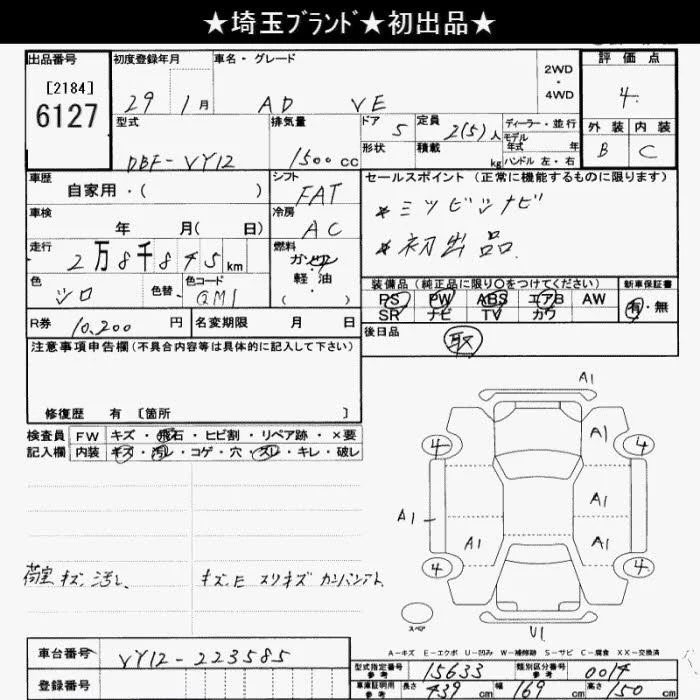 ★埼玉ブランド★初出品★
出品番号 初度登録年月 車名・グレード 2WD・4WD 評価点
[2184] 29 1月 AD VE 4
6127
外装 内装
B C
型式 排気量 ドア 定員 ディーラー・並行
DBF-VY12 1500cc 5 2(5)人 モデル年式 年
形状 積載 kg ハンドル 左・右
車歴 シフト セールスポイント (正常に機能するものに限ります)
自家用・( ) FAT
車検 冷房 *ミツビシナビ
年 月( 日) AC *初出品
走行 燃料
2万8千845km ガソリン・軽油・( )
色 色替 色コード
シロ QM1
装備品 (純正品に限り○をつけてください) 新車保証書
PS PW ABS エアB AW 有・無
SR ナビ TV カワ
R券 10,200円 名変期限 月 日
後日品 取
注意事項申告欄(不具合内容等は具体的に記入して下さい)
修復歴 有 [箇所 ]
検査員 FW キズ・飛石・ヒビ割・リペア跡・×要
記入欄 内装 キズ・汚レ・コゲ・穴・スレ・キレ・破レ
A1
4 A1 4
A1
A1
A1 A1
4 4
荷室キズ、汚レ キズ、E スリキズ カンバンアト
スペア
U1
A-キズ E-エクボ U-凹み W-補修跡 S-サビ C-腐食 XX-交換済
車台番号 VY12-223585
登録番号
型式指定番号 参考 15633 類別区分番号 参考 0014
車庫証明用 参考 長さ 439cm 幅 169cm 高さ 150cm